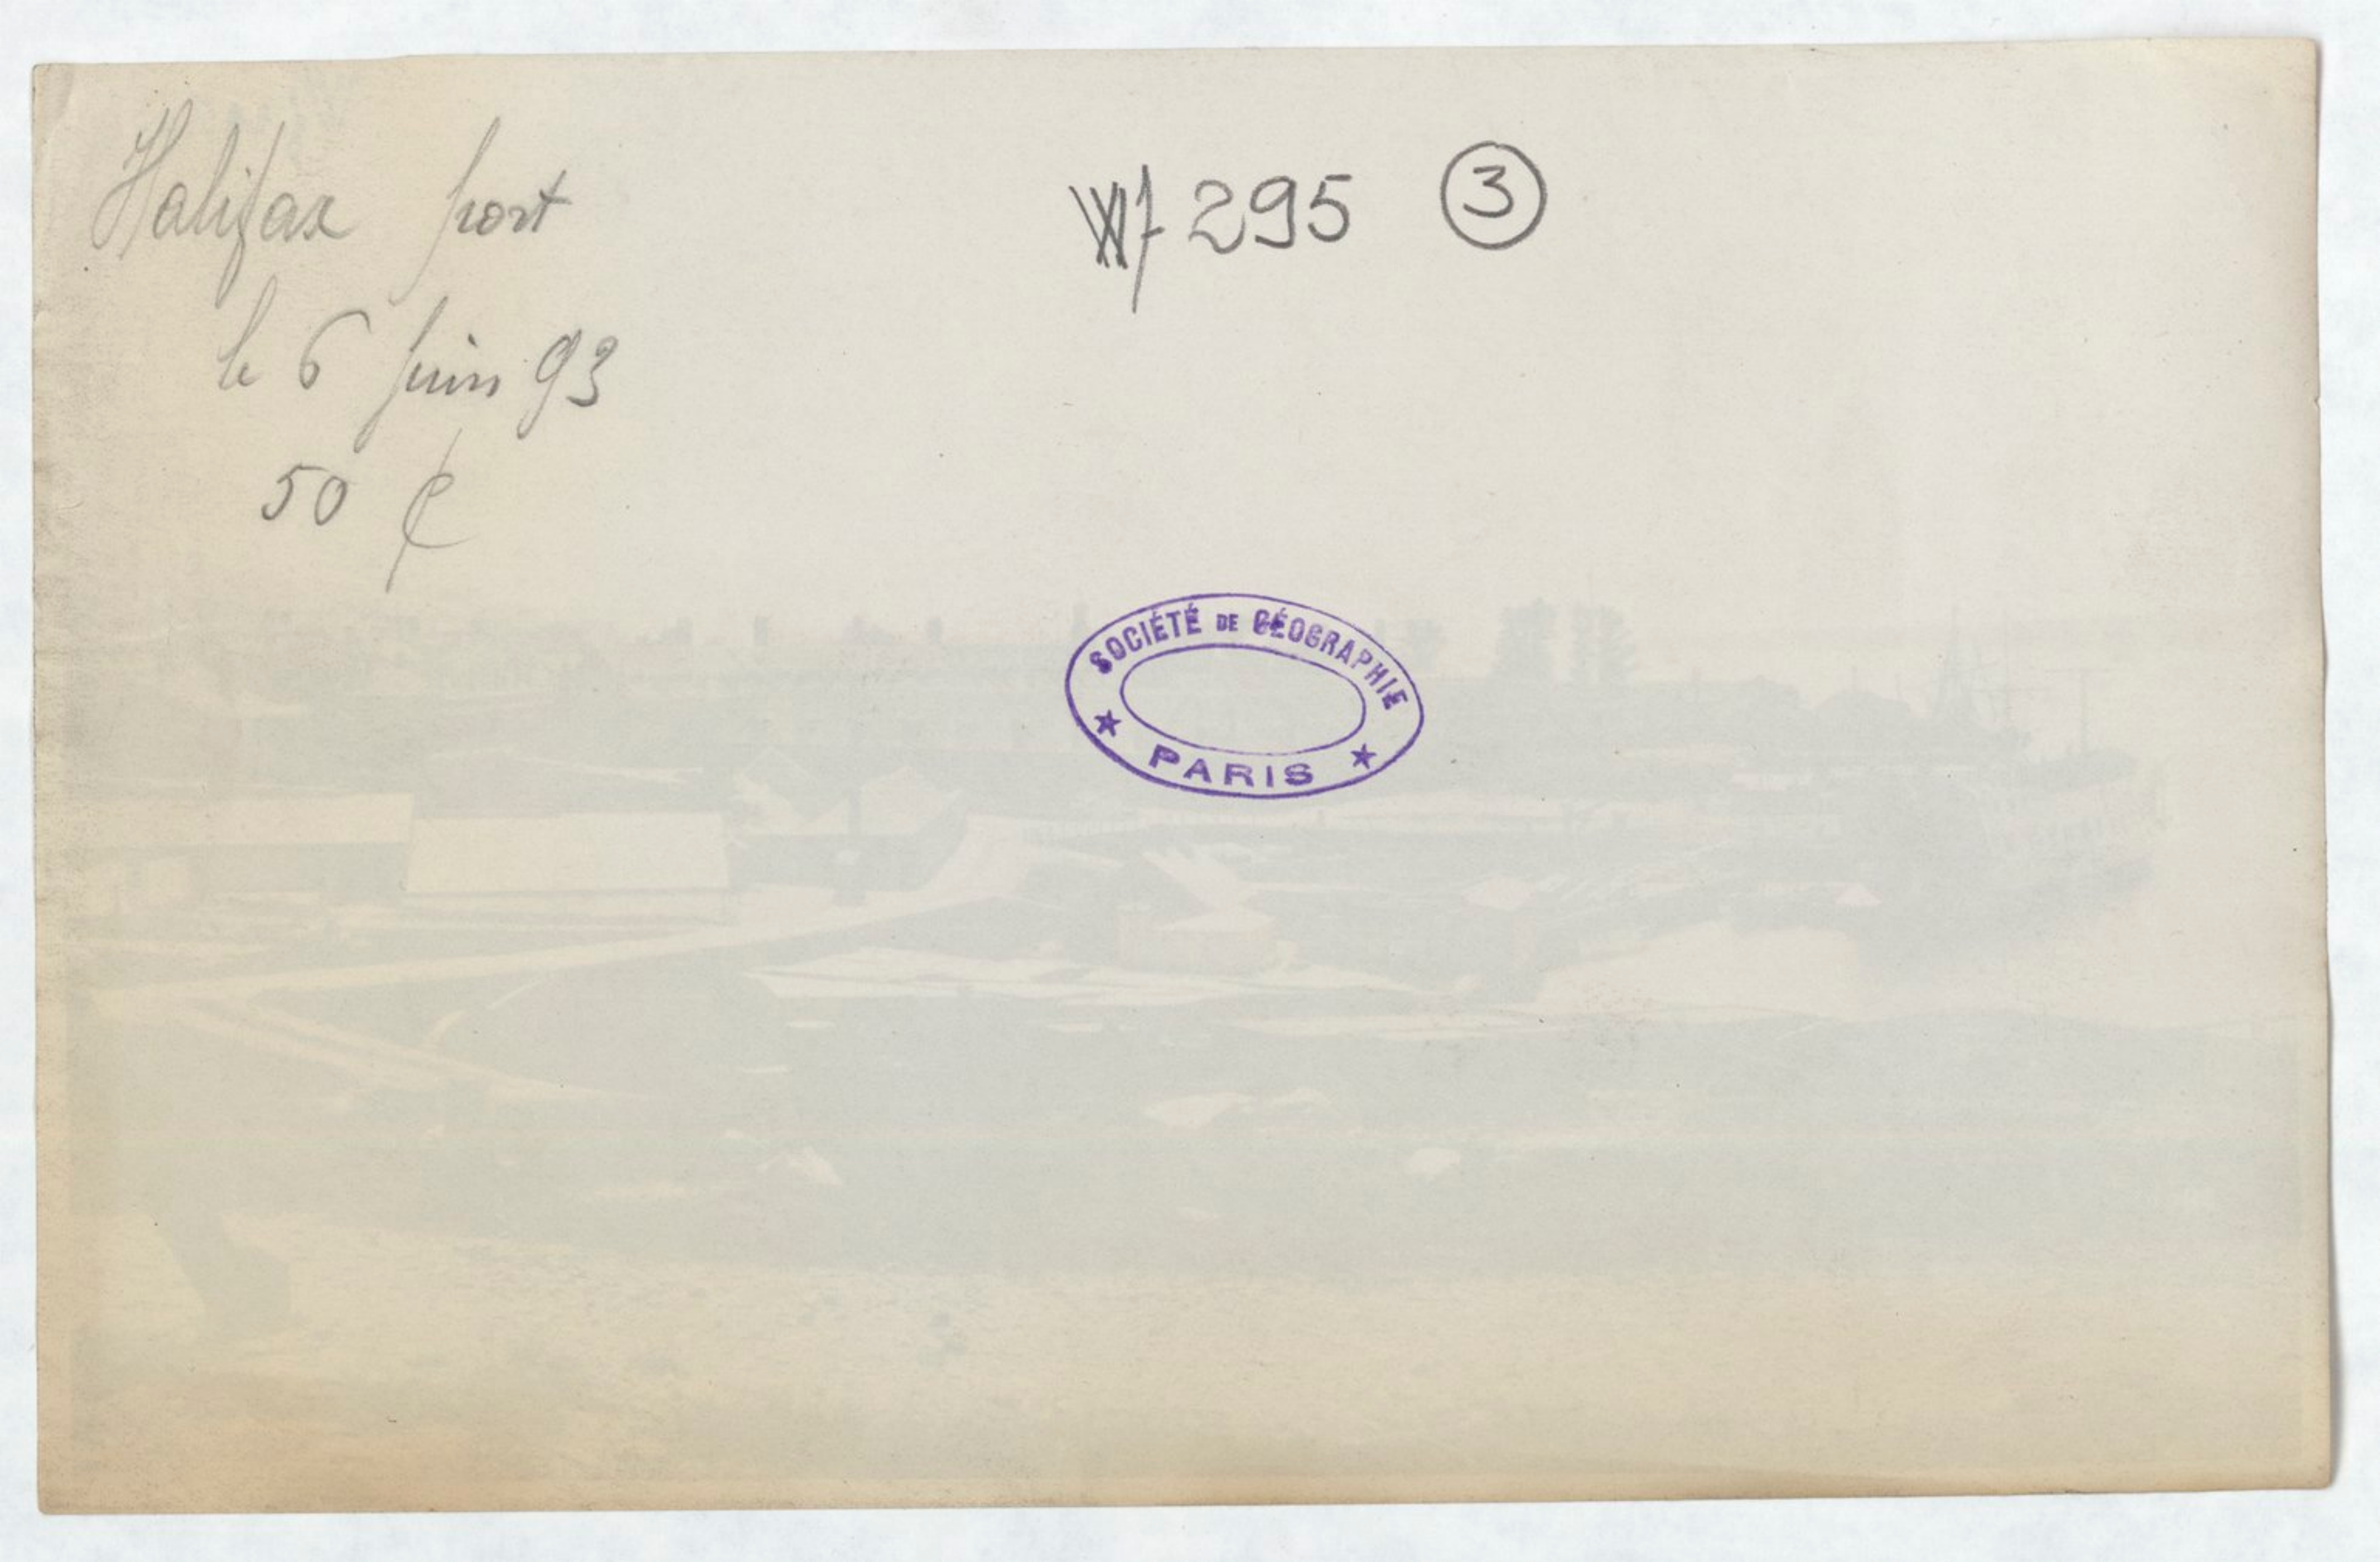 Halifax port
le 6 juin 93
50 ¢
Wf 295 3
SOCIÉTÉ DE GÉOGRAPHIE
★ PARIS ★